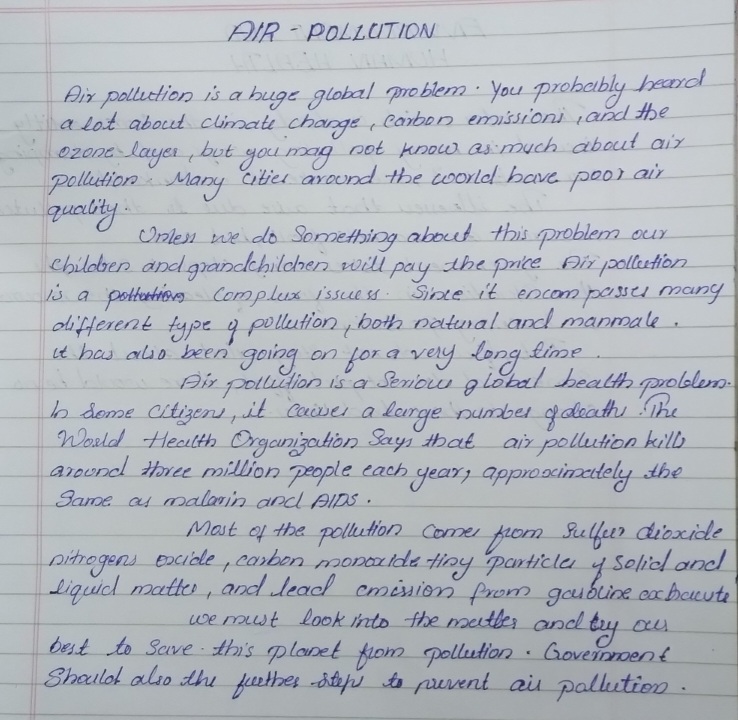 AIR - POLLUTION
Air pollution is a huge global problem. You probably heard
a lot about climate change, carbon emissions, and the
ozone layer, but you mag not know as much about air
pollution. Many cities around the world have poor air
quality.
Unless we do Something about this problem our
children and grandchildren will pay the price. Air pollution
is a pollution complex issuess. Since it encompasses many
different type of pollution, both natural and manmale.
it has also been going on for a very long time.
Air pollution is a Serious global health problem.
In Some Citizens, it causes a large number of deaths. The
World Health Organization Says that air pollution kills
around three million people each year, approximately the
Same as malarin and AIDS.
Most of the pollution comes from Sulfur dioxide
nitrogens oxide, carbon monoxide tiny particles of solid and
liquid matter, and lead emission from gasoline
we must look into the matter and try our
best to Save this planet from pollution. Government
Should also the further steps to prevent air pollution.